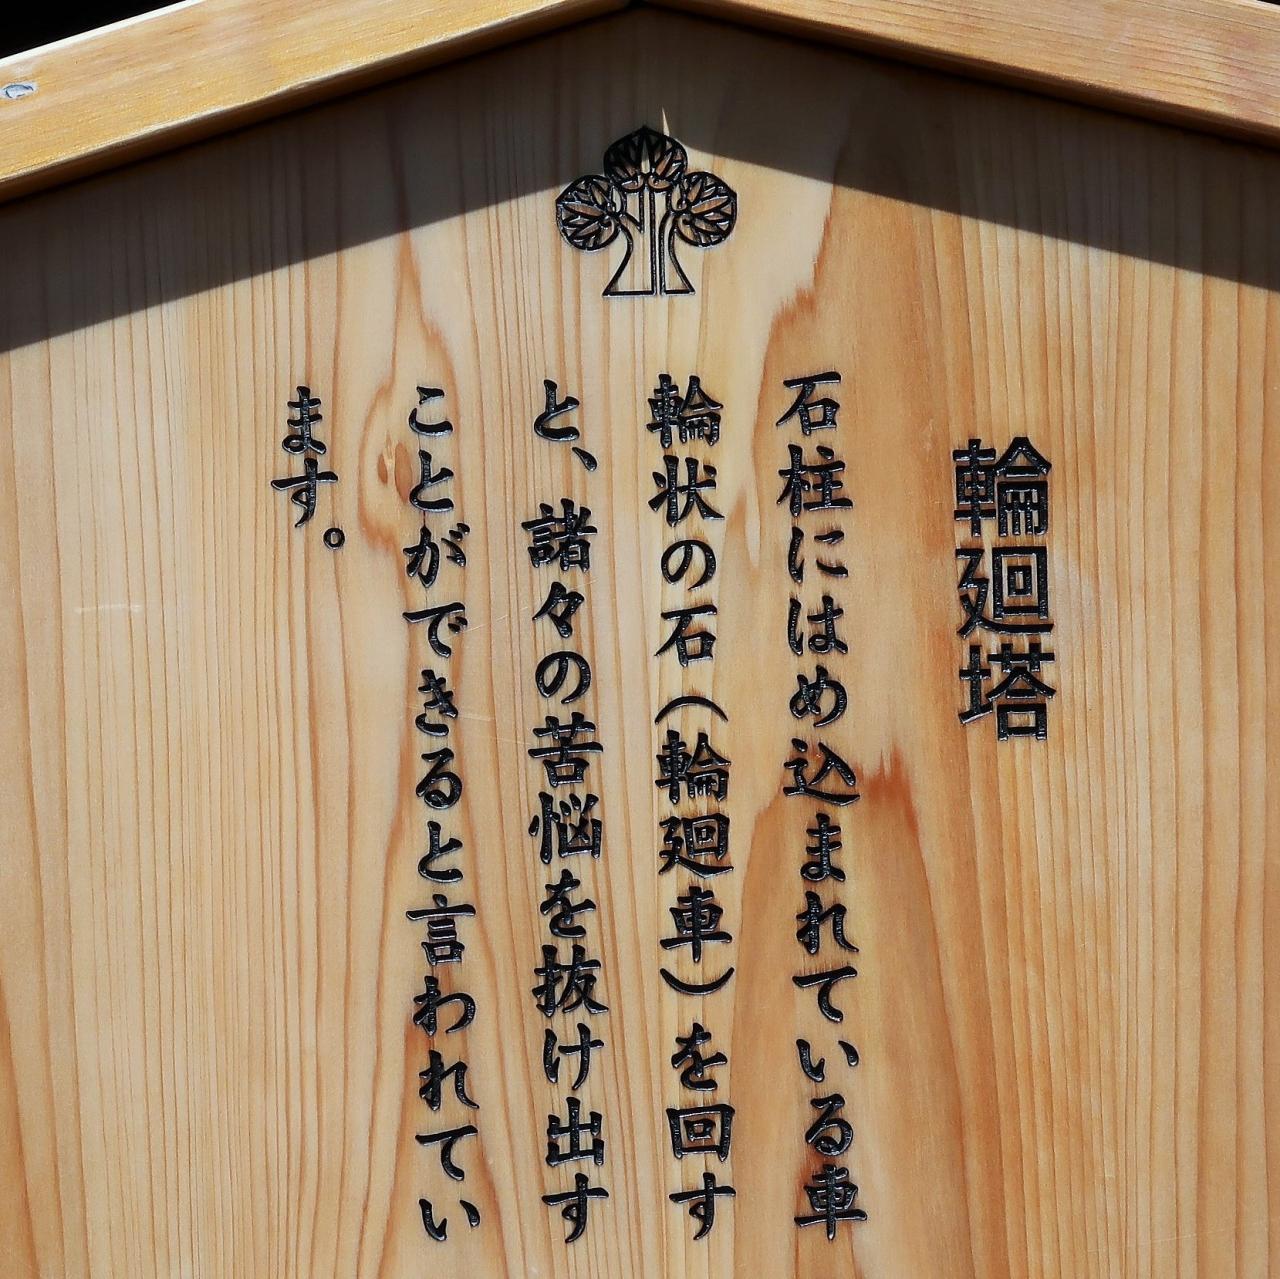 輪廻塔
石柱にはめ込まれている車
輪状の石（輪廻車）を回す
と、諸々の苦悩を抜け出す
ことができると言われてい
ます。